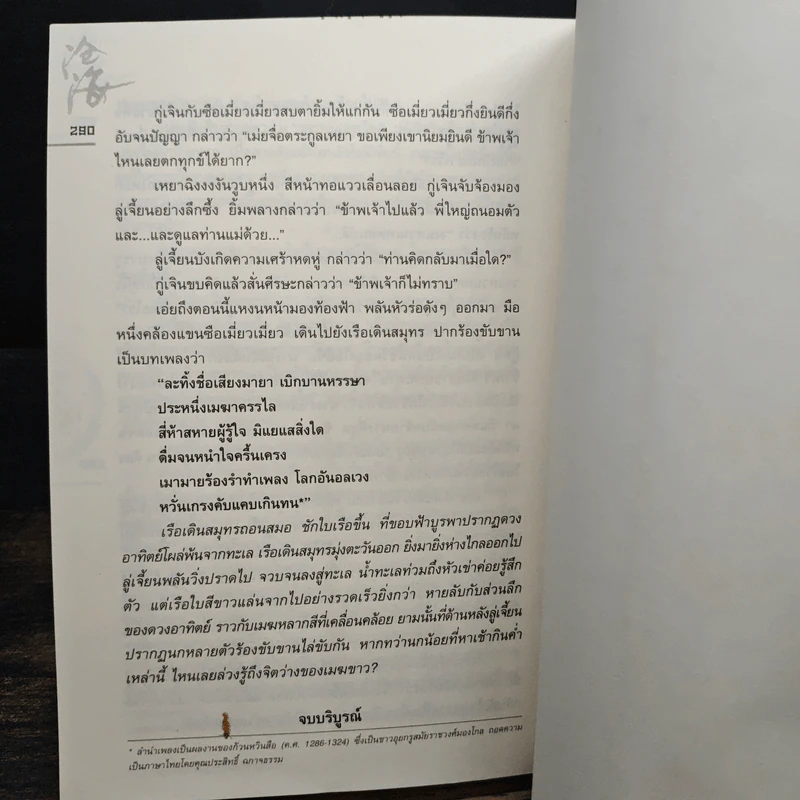 沧海
290
กู่เจินกับซือเมี่ยวเมี่ยวสบตายิ้มให้แก่กัน ซือเมี่ยวเมี่ยวกึ่งยินดีกึ่ง
อับจนปัญญา กล่าวว่า “เม่ยจื่อตระกูลเหยา ขอเพียงเขานิยมยินดี ข้าพเจ้า
ไหนเลยตกทุกข์ได้ยาก?”
เหยาฉิงงงงันวูบหนึ่ง สีหน้าทอแววเลื่อนลอย กู่เจินจับจ้องมอง
ลู่เจี้ยนอย่างลึกซึ้ง ยิ้มพลางกล่าวว่า “ข้าพเจ้าไปแล้ว พี่ใหญ่ถนอมตัว
และ...และดูแลท่านแม่ด้วย...”
ลู่เจี้ยนบังเกิดความเศร้าหดหู่ กล่าวว่า “ท่านคิดกลับมาเมื่อใด?”
กู่เจินขบคิดแล้วสั่นศีรษะกล่าวว่า “ข้าพเจ้าก็ไม่ทราบ”
เอ่ยถึงตอนนี้แหงนหน้ามองท้องฟ้า พลันหัวร่อดังๆ ออกมา มือ
หนึ่งคล้องแขนซือเมี่ยวเมี่ยว เดินไปยังเรือเดินสมุทร ปากร้องขับขาน
เป็นบทเพลงว่า
“ละทิ้งชื่อเสียงมายา เบิกบานหรรษา
ประหนึ่งเมฆาครรไล
สี่ห้าสหายผู้รู้ใจ มิแยแสสิ่งใด
ดื่มจนหนำใจครื้นเครง
เมามายร้องรำทำเพลง โลกอันอลเวง
หวั่นเกรงคับแคบเกินทน*”
เรือเดินสมุทรถอนสมอ ชักใบเรือขึ้น ที่ขอบฟ้าบูรพาปรากฏดวง
อาทิตย์โผล่พ้นจากทะเล เรือเดินสมุทรมุ่งตะวันออก ยิ่งมายิ่งห่างไกลออกไป
ลู่เจี้ยนพลันวิ่งปราดไป จวบจนลงสู่ทะเล น้ำทะเลท่วมถึงหัวเข่าค่อยรู้สึก
ตัว แต่เรือใบสีขาวแล่นจากไปอย่างรวดเร็วยิ่งกว่า หายลับกับส่วนลึก
ของดวงอาทิตย์ ราวกับเมฆหลากสีที่เคลื่อนคล้อย ยามนั้นที่ด้านหลังลู่เจี้ยน
ปรากฏนกหลายตัวร้องขับขานไล่ขับกัน หากทว่านกน้อยที่หาเช้ากินค่ำ
เหล่านี้ ไหนเลยล่วงรู้ถึงจิตว่างของเมฆขาว?
จบบริบูรณ์
* ลำนำเพลงเป็นผลงานของก้วนหวินสือ (ค.ศ. 1286-1324) ซึ่งเป็นชาวอุยกรูสมัยราชวงศ์มองโกล ถอดความ
เป็นภาษาไทยโดยคุณประสิทธิ์ ฉกาจธรรม